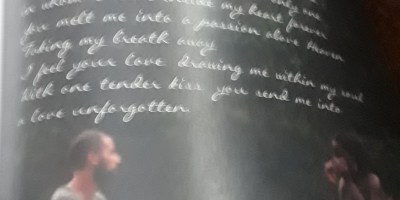 inside my heart forever
you melt me into a passion above Heaven
Taking my breath away
I feel your love drawing me within my soul
With one tender kiss you send me into
a love unforgotten